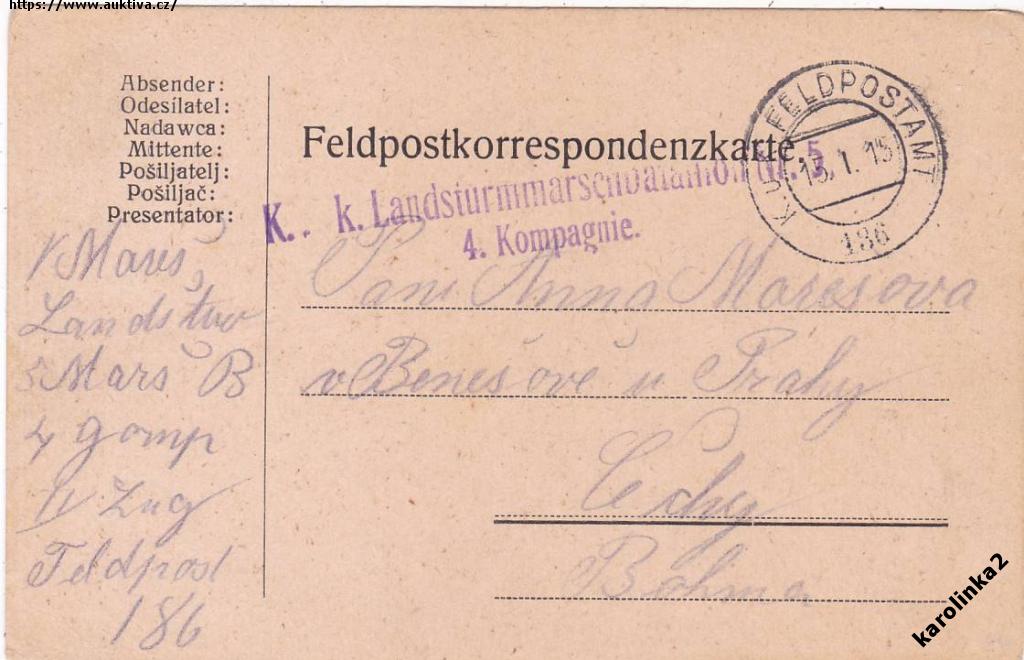 https://www.auktiva.cz/
Absender:
Odesílatel:
Nadawca:
Mittente:
Pošiljatelj:
Pošiljač:
Presentator:
Feldpostkorrespondenzkarte.
K. k. Landsturmmarschbataillon Nr. 5
4. Kompagnie.
K.U.K. FELDPOSTAMT
13. I. 15
186
V Mareš
Landštvo
5 Marš B
4 gomp
II Zug
Feldpost
186
Paní Anna Marešova
v Benešově u Prahy
Čechy
Böhma
karolinka2